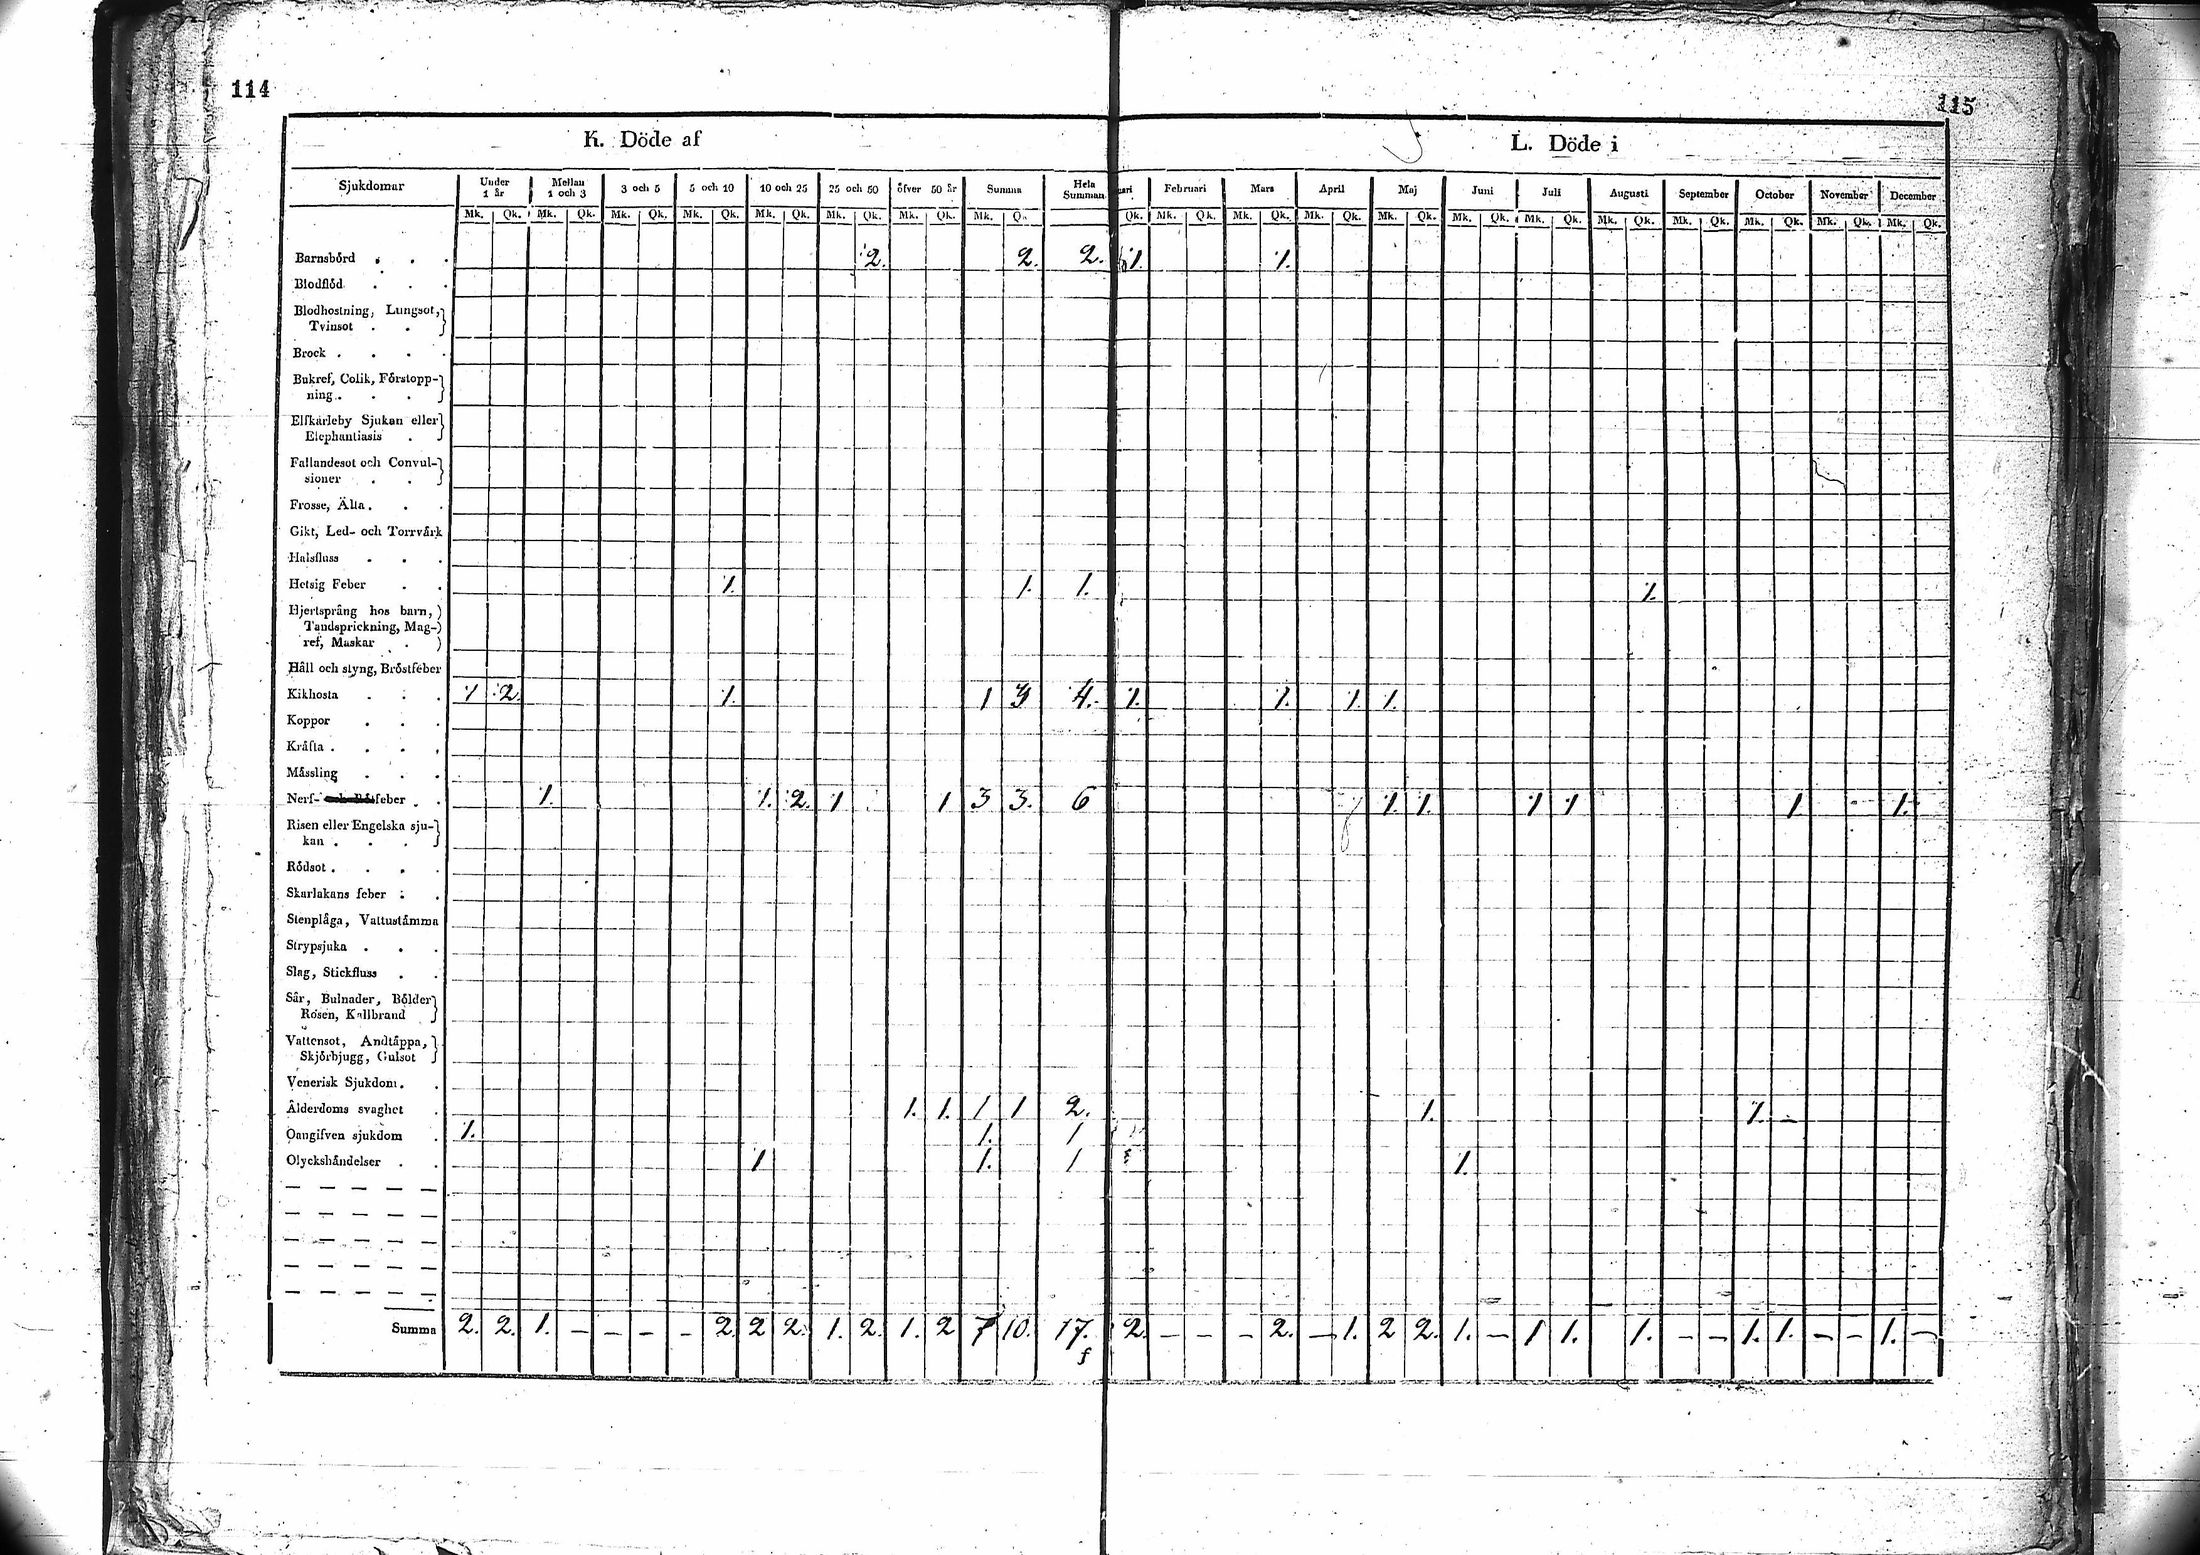 114
115
K. Döde af
L. Döde i
Sjukdomar Under 1 år Mellan 1 och 3 3 och 5 5 och 10 10 och 25 25 och 50 öfver 50 år Summa Hela Summan
uari Februari Mars April Maj Juni Juli Augusti September October November December
Mk. Qk. Mk. Qk. Mk. Qk. Mk. Qk. Mk. Qk. Mk. Qk. Mk. Qk. Mk. Qk.
Qk. Mk. Qk. Mk. Qk. Mk. Qk. Mk. Qk. Mk. Qk. Mk. Qk. Mk. Qk. Mk. Qk. Mk. Qk. Mk. Qk. Mk. Qk.
Barnsbörd . . . 2. 2. 2. 1. 1.
Blodflöd . . .
Blodhostning, Lungsot,
Tvinsot . .
Brock . . . .
Bukref, Colik, Förstopp-
ning . . .
Elfkarleby Sjukan eller
Elephantiasis .
Fallandesot och Convul-
sioner . .
Frosse, Älta . . .
Gikt, Led- och Torrvårk
Halsfluss . . .
Hetsig Feber . . 1. 1. 1. 1.
Hjertsprång hos barn,
Tandsprickning, Mag-
ref, Maskar .
Håll och styng, Bröstfeber
Kikhosta . . . 1 2. 1. 1 3 4. 1. 1. 1. 1.
Koppor . . .
Kråfta . . . .
Måssling . . .
Nerf- och Rötfeber . . 1. 1. 2. 1 1 3 3. 6 1. 1. 1 1 1 1.
Risen eller Engelska sju-
kan . . .
Rödsot . . . .
Skarlakans feber . .
Stenplåga, Vattuståmma
Strypsjuka . . .
Slag, Stickfluss . .
Sår, Bulnader, Bölder
Rosen, Kallbrand
Vattensot, Andtåppa,
Skjörbjugg, Gulsot
Venerisk Sjukdom . .
Ålderdoms svaghet . 1. 1. 1 1 2. 1. 1. –
Oangifven sjukdom . 1. 1. 1
Olyckshåndelser . . 1 1. 1 1.
Summa 2. 2. 1. – – – – 2 2 2. 1. 2. 1. 2 7 10. 17. 2. – – – 2. – 1. 2 2. 1. – 1 1. 1. – – 1. 1. – – 1. –